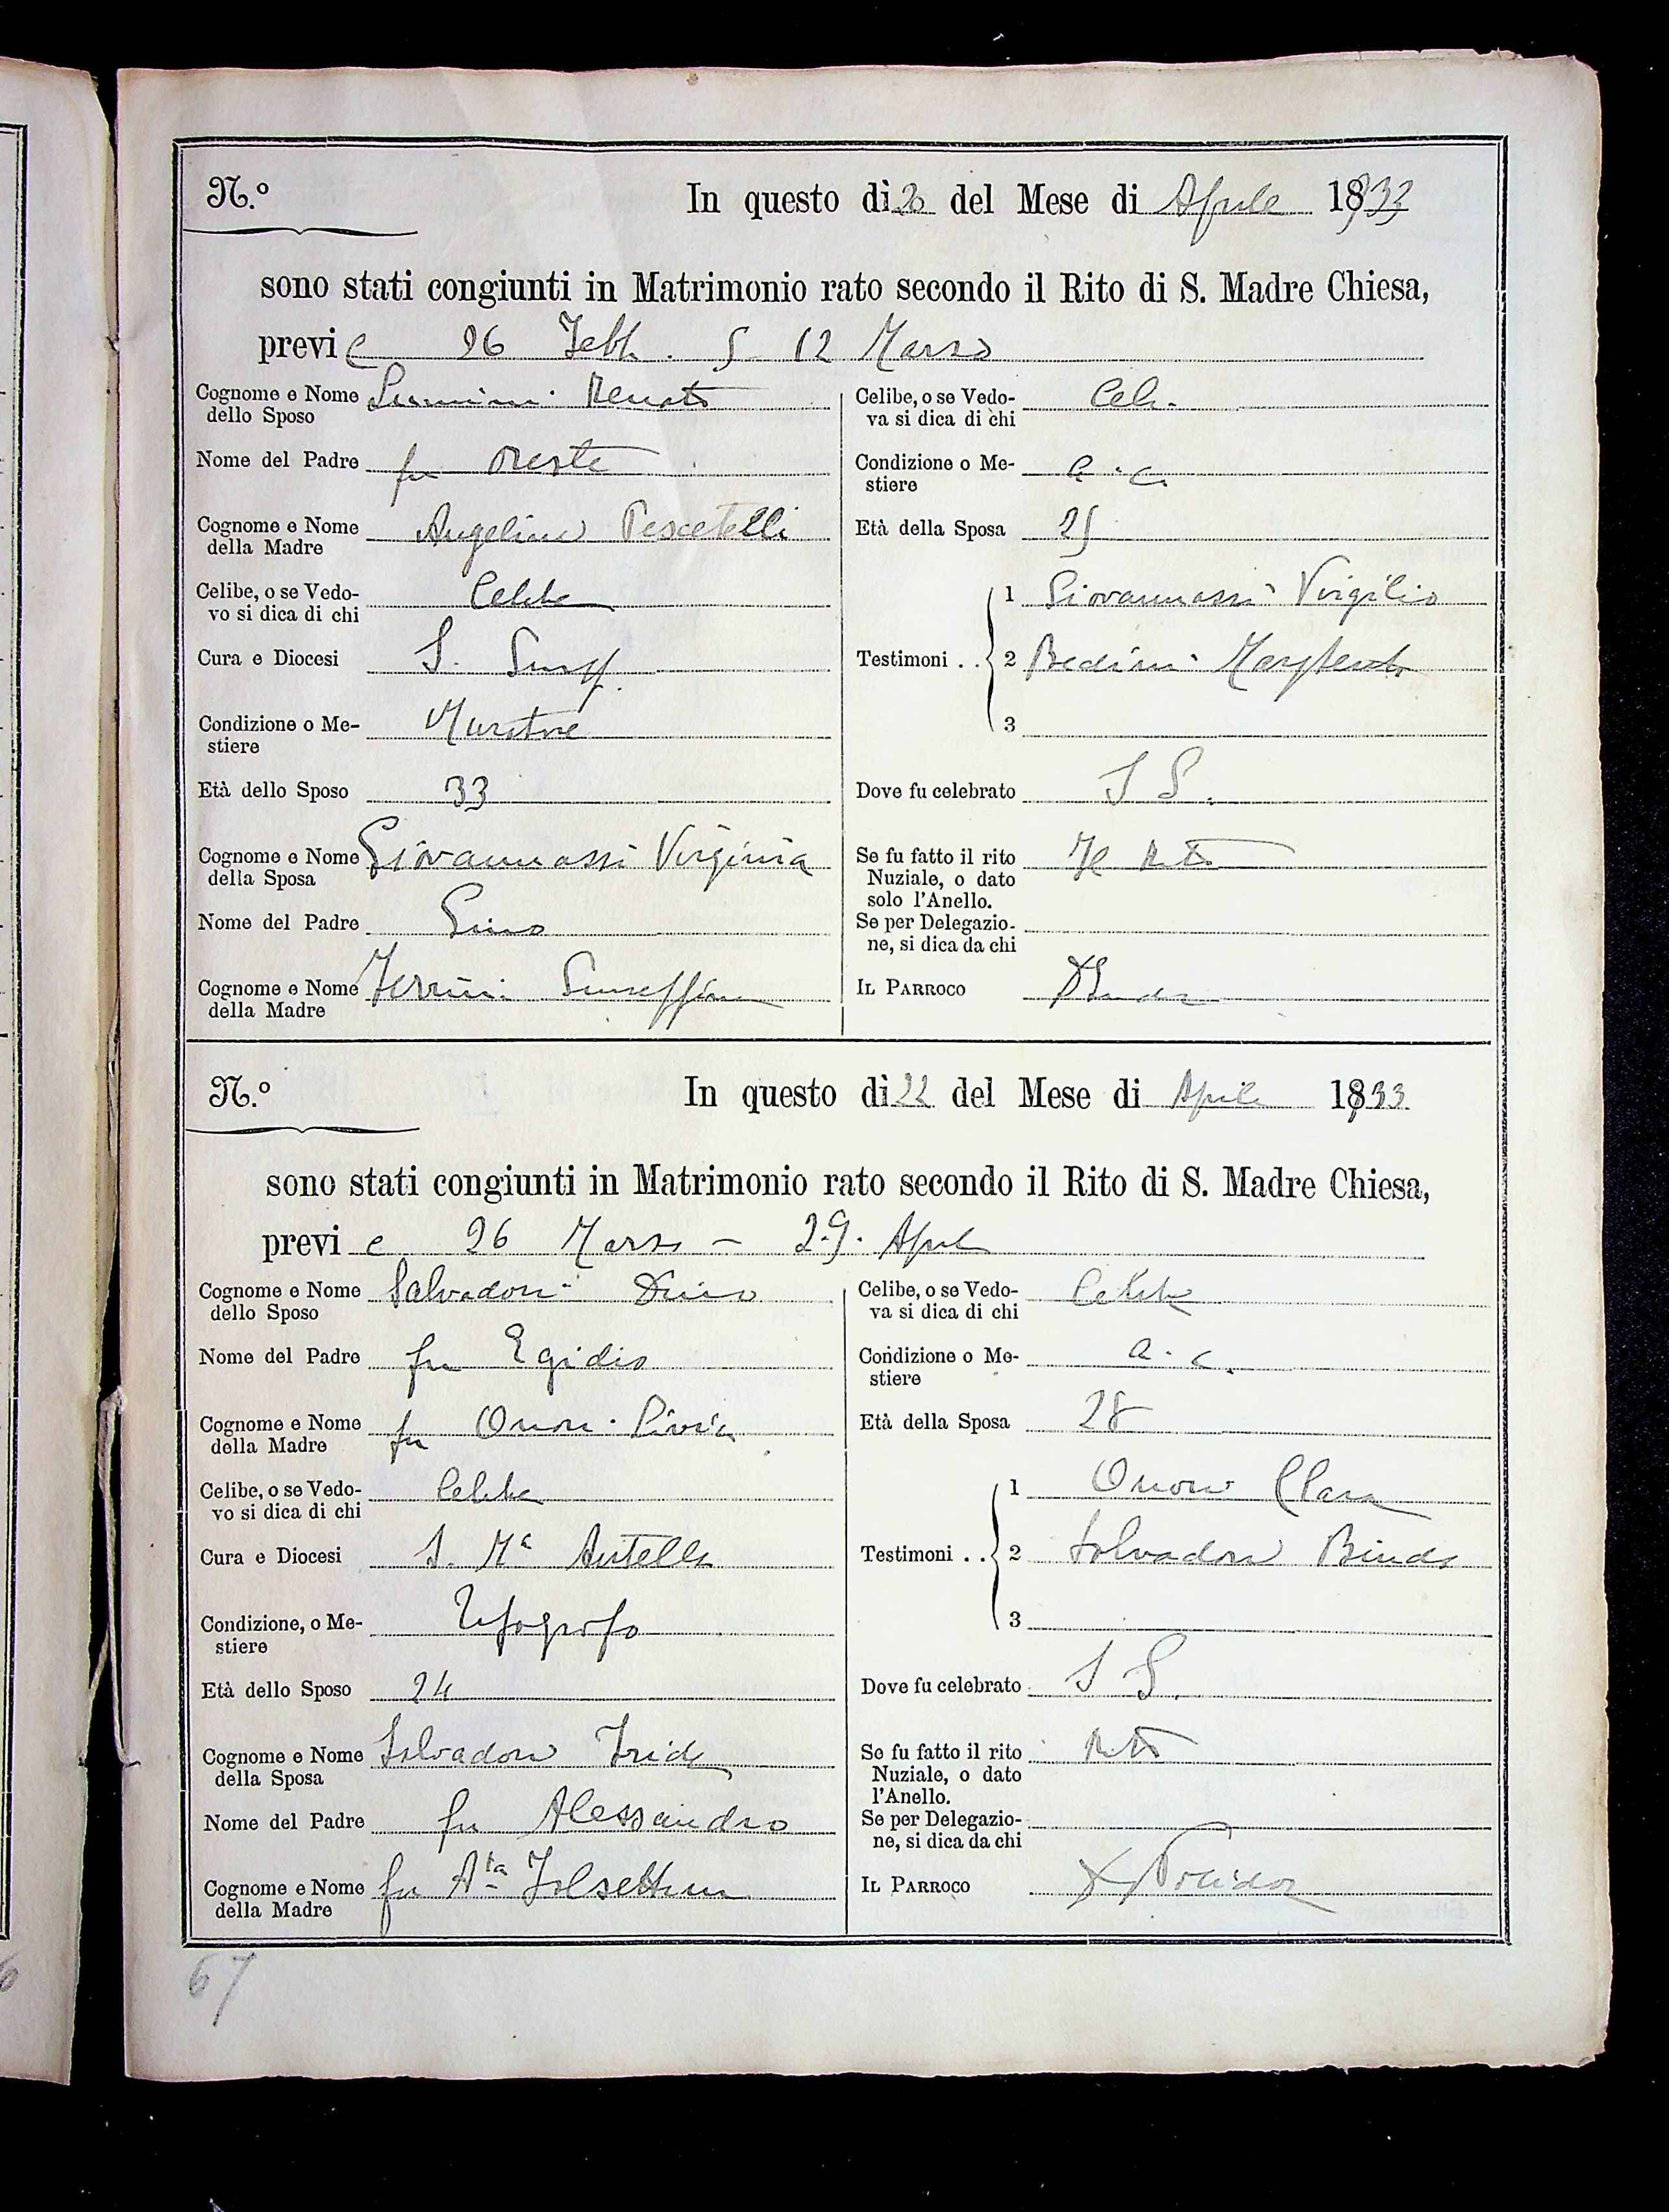 N.º In questo dì 20 del Mese di Aprile 1933
sono stati congiunti in Matrimonio rato secondo il Rito di S. Madre Chiesa,
previ e 26 Febb. 5 - 12 Marzo
Cognome e Nome dello Sposo Renato
Nome del Padre fu Oreste
Cognome e Nome della Madre Angelina Pescetelli
Celibe, o se Vedovo si dica di chi Celibe
Cura e Diocesi S.
Condizione o Mestiere Muratore
Età dello Sposo 33
Cognome e Nome della Sposa Giovannassi Virginia
Nome del Padre Gino
Cognome e Nome della Madre Ferrini Giuseppina
Celibe, o se Vedova si dica di chi Celi.
Condizione o Mestiere a. c.
Età della Sposa 25
Testimoni . .
1 Giovannassi Virgilio
2 Bedini Margherita
3
Dove fu celebrato I S.
Se fu fatto il rito Nuziale, o dato solo l'Anello. Il Rito
Se per Delegazione, si dica da chi
IL PARROCO
N.º In questo dì 22 del Mese di Aprile 1933
sono stati congiunti in Matrimonio rato secondo il Rito di S. Madre Chiesa,
previ e 26 Marzo - 2. 9. Aprile
Cognome e Nome dello Sposo Salvadori Dino
Nome del Padre fu Egidio
Cognome e Nome della Madre fu Onori Livia
Celibe, o se Vedovo si dica di chi Celibe
Cura e Diocesi S. Mª Antella
Condizione, o Mestiere Tipografo
Età dello Sposo 24
Cognome e Nome della Sposa Salvadori Iride
Nome del Padre fu Alessandro
Cognome e Nome della Madre fu Aª
Celibe, o se Vedova si dica di chi Celibe
Condizione o Mestiere a. c.
Età della Sposa 28
Testimoni . .
1 Onori Clara
2 Salvadori Bindo
3
Dove fu celebrato I S.
Se fu fatto il rito Nuziale, o dato l'Anello. Rito
Se per Delegazione, si dica da chi
IL PARROCO
67